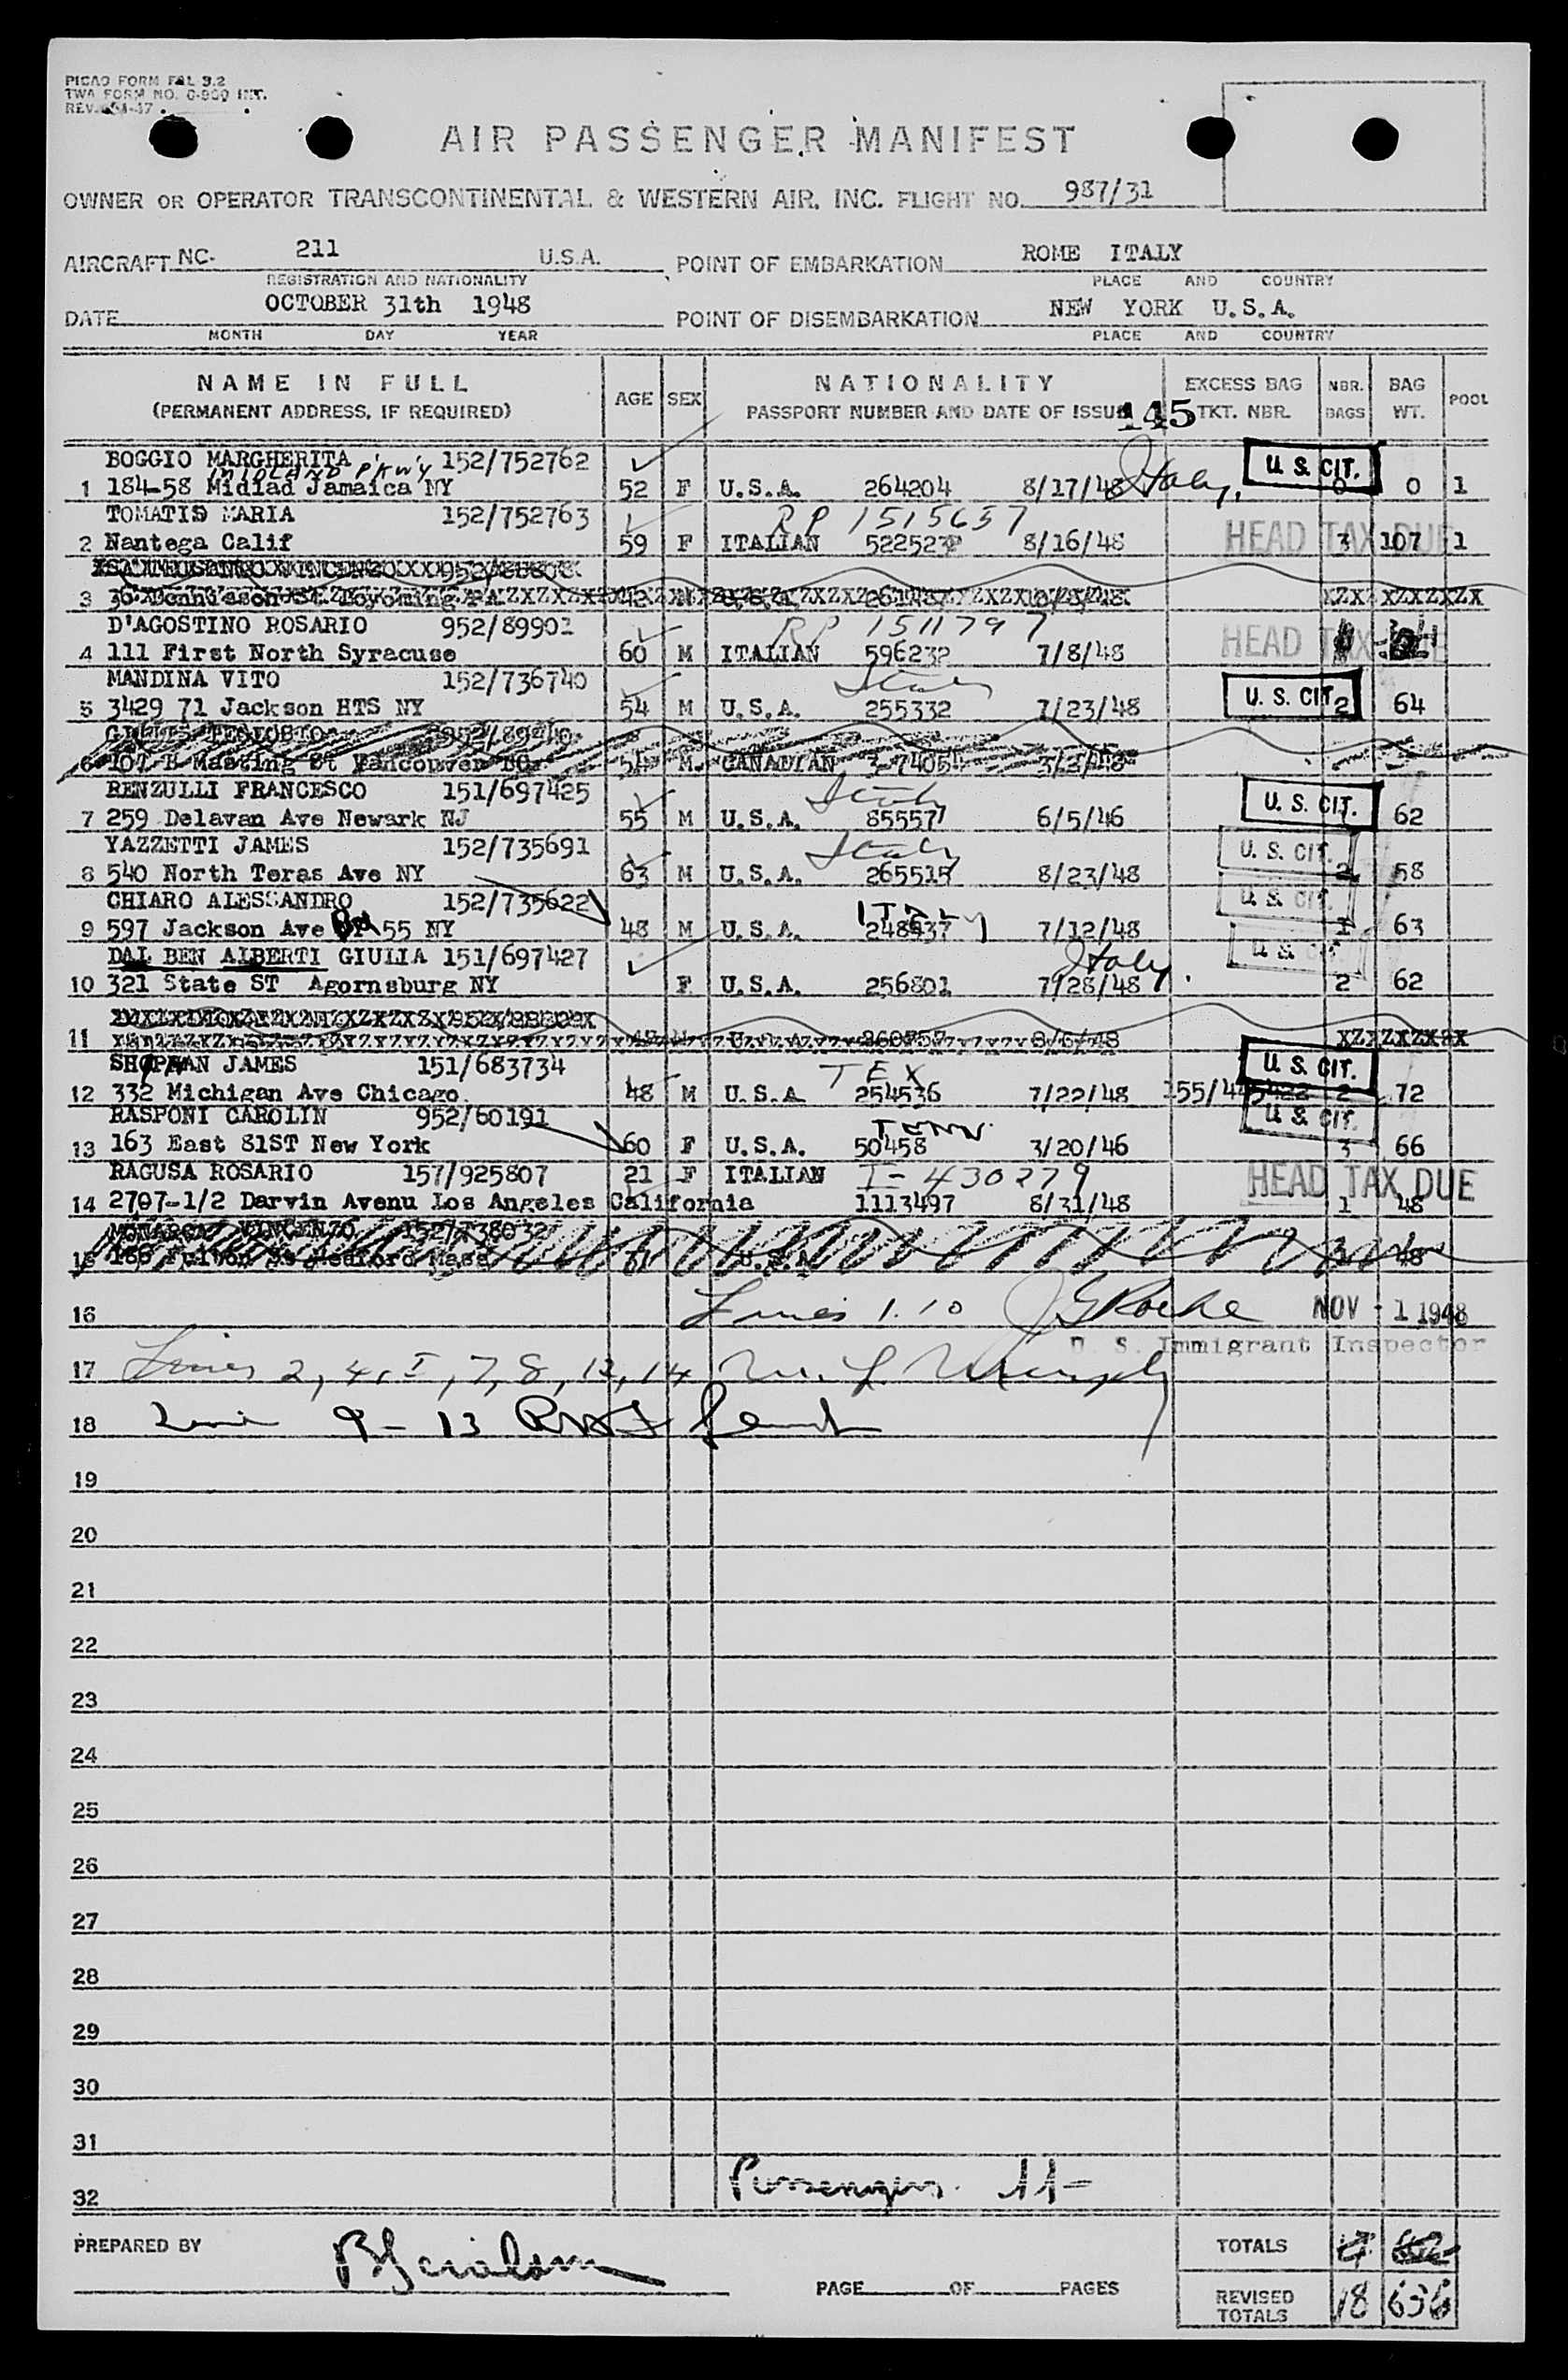 PICAO FORM FAL 3.2
TWA FORM NO. INT.
REV.
AIR PASSENGER MANIFEST
OWNER OR OPERATOR TRANSCONTINENTAL & WESTERN AIR, INC. FLIGHT NO. 987/31
AIRCRAFT NC- 211 U.S.A. POINT OF EMBARKATION ROME ITALY
REGISTRATION AND NATIONALITY PLACE AND COUNTRY
DATE OCTOBER 31th 1948 POINT OF DISEMBARKATION NEW YORK U.S.A.
MONTH DAY YEAR PLACE AND COUNTRY
NAME IN FULL AGE SEX NATIONALITY EXCESS BAG NBR. BAG POOL
(PERMANENT ADDRESS, IF REQUIRED) PASSPORT NUMBER AND DATE OF ISSUE 145 TKT. NBR. BAGS WT.
BOGGIO MARGHERITA 152/752762 Italy. U.S. CIT.
MIDLAND P'KW'Y
1 184-58 Midlad Jamaica NY 52 F U.S.A. 264204 8/17/48 0 0 1
TOMATIS MARIA 152/752763 RP 1515657 HEAD TAX DUE
2 Nantega Calif 59 F ITALIAN 522523 8/16/48 3 107 1
3
D'AGOSTINO ROSARIO 952/89901 RP 1511797 HEAD TAX DUE
4 111 First North Syracuse 60 M ITALIAN 596232 7/8/48
MANDINA VITO 152/736740 Italy U.S. CIT
5 3429 71 Jackson HTS NY 54 M U.S.A. 255332 7/23/48 2 64
6 Vancouver BC 54 M CANADIAN 3-74054 3/2/48
RENZULLI FRANCESCO 151/697425 Italy U.S. CIT.
7 259 Delavan Ave Newark NJ 55 M U.S.A. 85557 6/5/46 62
YAZZETTI JAMES 152/735691 Italy U.S. CIT.
8 540 North Teras Ave NY 63 M U.S.A. 265515 8/23/48 2 58
CHIARO ALESSANDRO 152/735622 ITALY U.S. CIT.
9 597 Jackson Ave 55 NY 48 M U.S.A. 248937 7/12/48 1 63
DAL BEN ALBERTI GIULIA 151/697427 Italy. U.S. CIT.
10 321 State ST Agornsburg NY F U.S.A. 256801 7/28/48 2 62
11 8/6/48
SHOPMAN JAMES 151/683734 TEX U.S. CIT.
12 332 Michigan Ave Chicago 48 M U.S.A 254536 7/22/48 2 72
RASPONI CAROLIN 952/60191 TENN. U.S. CIT.
13 163 East 81ST New York 60 F U.S.A. 50458 3/20/46 3 66
RAGUSA ROSARIO 157/925807 21 F ITALIAN I-430279 HEAD TAX DUE
14 2707-1/2 Darvin Avenu Los Angeles California 1113497 8/31/48 1 48
VINCENZO 152/738032
15 U.S.A. 48
16 Lines 1.10 J G Roche NOV - 1 1948
U. S. Immigrant Inspector
17 Lines 2, 4, 5, 7, 8, 12, 14
18 Line 9 - 13
19
20
21
22
23
24
25
26
27
28
29
30
31
Passengers. 11-
32
PREPARED BY TOTALS
PAGE OF PAGES REVISED TOTALS 18 636